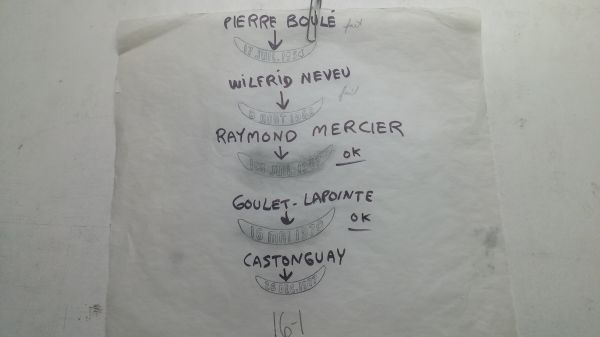 PIERRE BOULÉ fait
WILFRID NEVEU fait
RAYMOND MERCIER
OK
GOULET-LAPOINTE
16 MAI 1970 OK
CASTONGUAY
16-1